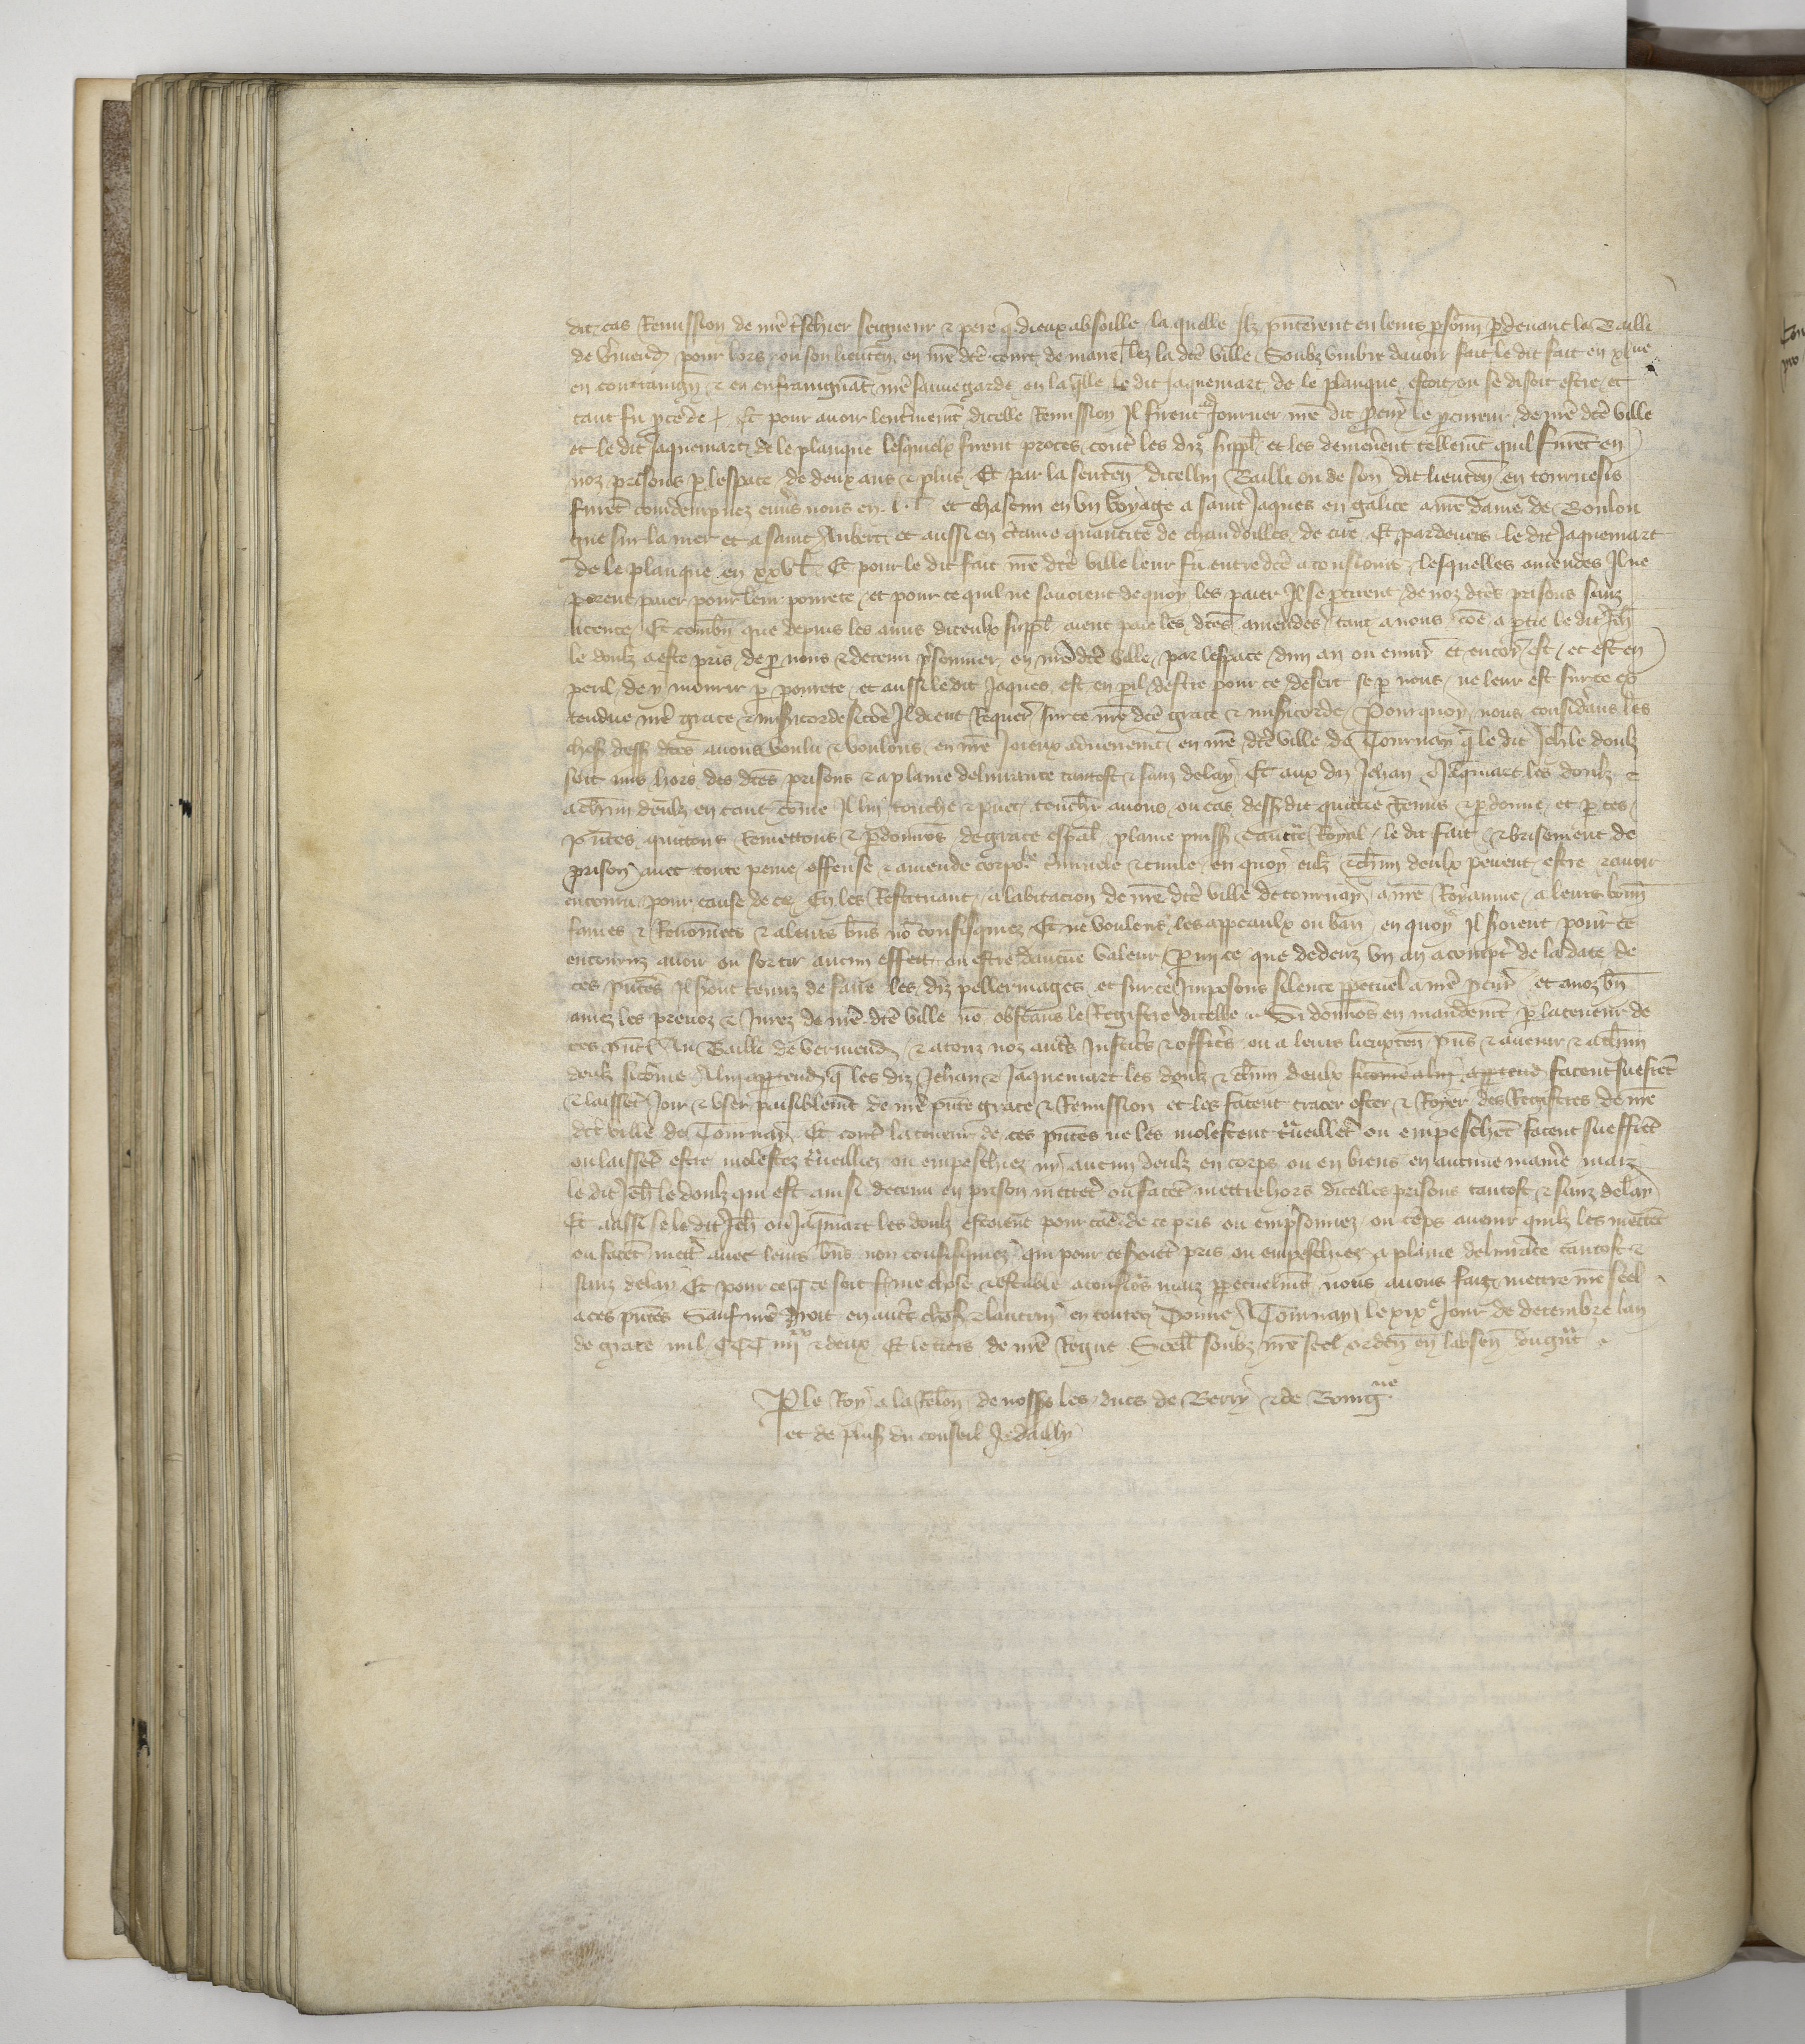 dit cas Remission de nr̃e tresch̾ier seigneur ⁊ pere q̃ dieux absoille la quelle Ilz pñterent en leurs p̱sõnes p̱deuant le Bailli
de Vermend̾ pour lors ou son lieuten̄ en nr̃e dcẽ court de maire lez la dcẽ ville Soubz vmbre dauoir fait le dit fait en
en contraingñ ⁊ en enfraingnãt nr̃e sauuegarde en la q̃lle le dit Jaquemart de le planque estoit ou se disoit estre et
tant fu p̱cede Et pour auoir lentrinemẽt dicelle Remission Il firent adJourner nr̃e dit p̱cur̾ le p̱cureur de nr̃e dcẽ ville
et le dit Jaquemart de le planque lesquelx firent proces contr̾ les diz suppl̾ et les demenerent tellemẽt quil furẽt en
noz prisons p̱ lespace de deux ans ⁊ plus Et par la senten̄ dicelluy Bailli ou de son dit lieuten̄ en tournesis
furẽt condempnez enu̾s nous en l. l̾ et chascun en vn voyage a saint Jaques en galice a nr̃e dame de Boulon
gne sur la mer et a saint Aubert et aussi en c̾taine quantite de chandoilles de cire Et pardeuers le dit Jaquemart
de le planque en xxv l̾ Et pour le dit fait nr̃e dcẽ ville leur fu entredcẽ a tousiours lesquelles amendes Il ne
porent paier pour leur pourete et pour ce quil ne sauoient de quoy les paier Il se p̱tirent de noz dcẽs prisons sanz
licence Et combñ que depuis les amis diceulx suppl̾ aient paie les dcẽs amendes tant a nous cõe a p̱tie le dit Jeh̾
le doulz a este pris de p̱ nous ⁊ detenu p̾sonnier en nr̃e dcẽ ville par lespace dun an ou enuir̾ et encor̾ est et est en
peril de y mourir p̱ pourete et aussi le dit Jaques est en p̱il destre pour ce desert se p̱ nous ne leur est sur ce es
tendue nr̃e grace ⁊ mis̾icorde sicõe Il dient Requer̾ sur ce nr̃e dcẽ grace ⁊ mis̾icorde Pourquoy nous considerãs les
choses dess̾ dcẽs auons voulu ⁊ voulons en nr̃e Joieux aduenemẽt en nr̃e dcẽ ville de Tournay q̃ le dit Jeh̾ le doulz
soit mis hors des dcẽs prisons ⁊ a plaine deliurance tantost ⁊ sanz delay Et aux diz Jehan ⁊ Jaq̃mart les doulz ⁊
a ch̾un deulz en tant cõme Il lui touche ⁊ puet touch̾r auons ou cas dess̾ dit quitte Remis ⁊ p̱donne et p̱ ces
pñtes quittons Remettons ⁊ p̱donnõs de grace esp̃al plaine puiss̾ ⁊ auct̾te Royal le dit fait ⁊ brisement de
prison auec toute peine offense ⁊ amende corpor̾le criminele ⁊ ciuile en quoy eulz ⁊ ch̾un deulx peuent estre ⁊ auoir
encouru pour cause de ce En les Restituant a labitacion de nr̃e dcẽ ville de tournay a nr̃e Royaume a leurs bonn̄
fames ⁊ Renommees ⁊ a leurs bñs nõ confisquez Et ne voulons les appeaulx ou ban en quoy Il s̾oient pour ce
encouruz auoir ou sortir aucun effect ou estre daucune valeur p̱my ce que dedenz vn an a compt̾ de la date de
ces pñtes Il s̾ont tenuz de faire les diz pellerinages et sur ce Imposons silence p̱petuel a nr̃e p̱cur̾ et a noz bñ
amez les preuoz ⁊ Jurez de nr̃e dcẽ ville nõ obstans le Registre dicelle Si donnõs en mandemẽt p̱ la teneur de
ces pñtes Au Bailli de vermend̾ ⁊ a touz noz autr̾s Justic̾s ⁊ offic̾s ou a leurs lieuxten̄ pñs ⁊ a venir ⁊ a ch̾un
deulz sicõme a luy app̱tend̾ q̃ les diz Jehan ⁊ Jaquemart les doulz ⁊ ch̾un deulx sicõme a luy app̱tend̾ facent sueffrẽt
⁊ laissẽt Joir ⁊ vser paisiblemẽt de nr̃e pñte grace ⁊ Remission et les facent tracer oster ⁊ Royer des Registres de nr̃e
dcẽ ville de Tournay Et contr̾ la teneur de ces pñtes ne les molestent trauaillẽt ou empeschẽt facent sueffrẽt
ou laissẽt estre molestez trauailliez ou empeschiez ne aucun deulz en corps ou en biens en aucune maniẽre maiz
le dit Jeh̾ le doulz qui est ainsi detenu en prison mettẽt ou facẽt mettre hors dicelles prisons tantost ⁊ sanz delay
Et aussi se le dit Jeh̾ ou Jaq̃mart les doulz estoient pour cãe de ce pris ou emp̾sonnez ou tẽps auenir quilz les mettẽt
ou facẽt mettr̾ auec leurs bñs non confisquez qui pour ce s̾oiẽt pris ou empeschiez a plaine deliurãce tantost ⁊
sanz delay Et pour ce q̃ ce soit ferme chose ⁊ estable a tousio̾s maiz p̱petuelmẽt nous auons fait mettre nr̃e seel
a ces pñtes Sauf nr̃e droit en autr̾s choses ⁊ lautruy en toutes Donne A Tournay le xixe Jour de decembre lan
de grace mil CCC iiijxx ⁊ deux Et le tiers de nr̃e Regne Seell̾ soubz nr̃e seel orden̄ en labsen̄ du grãt
P̱ le Roy a la Relon̄ de nossgrs les ducs de Berry ⁊ de Bourg.ne
et de plus̾ du conseil J. dailly